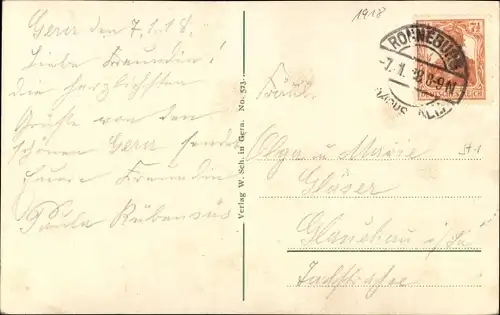 1918
Gera den 7.1.18.
Liebe Freundin!
die herzlichsten
Grüße von den
schönen Gera sendet
Euere Freundin
Paula
Verlag W. Sch. in Gera. No. 523.
RONNEBURG
-7.1.18 8-9N
7½
Fräul.
Olga u Marie
Gläser
Glauchau i/Sa